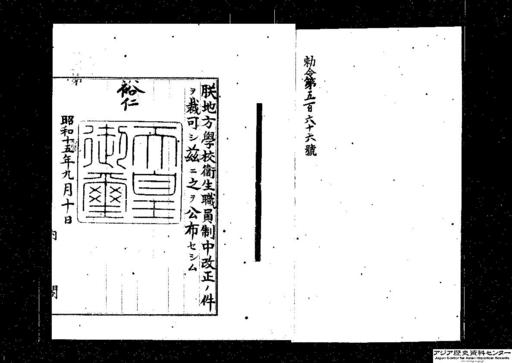 勅令第五百六十六號
朕地方學校衞生職員制中改正ノ件
ヲ裁可シ茲ニ之ヲ公布セシム
裕仁
天皇
御璽
昭和十五年九月十日
内
閣
アジア歴史資料センター
Japan Center for Asian Historical Records